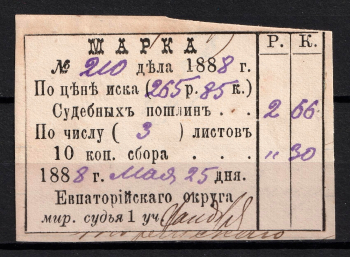 МАРКА Р. К.
№ 210 дѣла 1888 г.
По цѣнѣ иска (265 р. 85 к.)
Судебныхъ пошлинъ . . . 2 66
По числу ( 3 ) листовъ
10 коп. сбора . . . " 30
1888 г. Мая 25 дня.
Евпаторійскаго округа
мир. судья 1 уч.